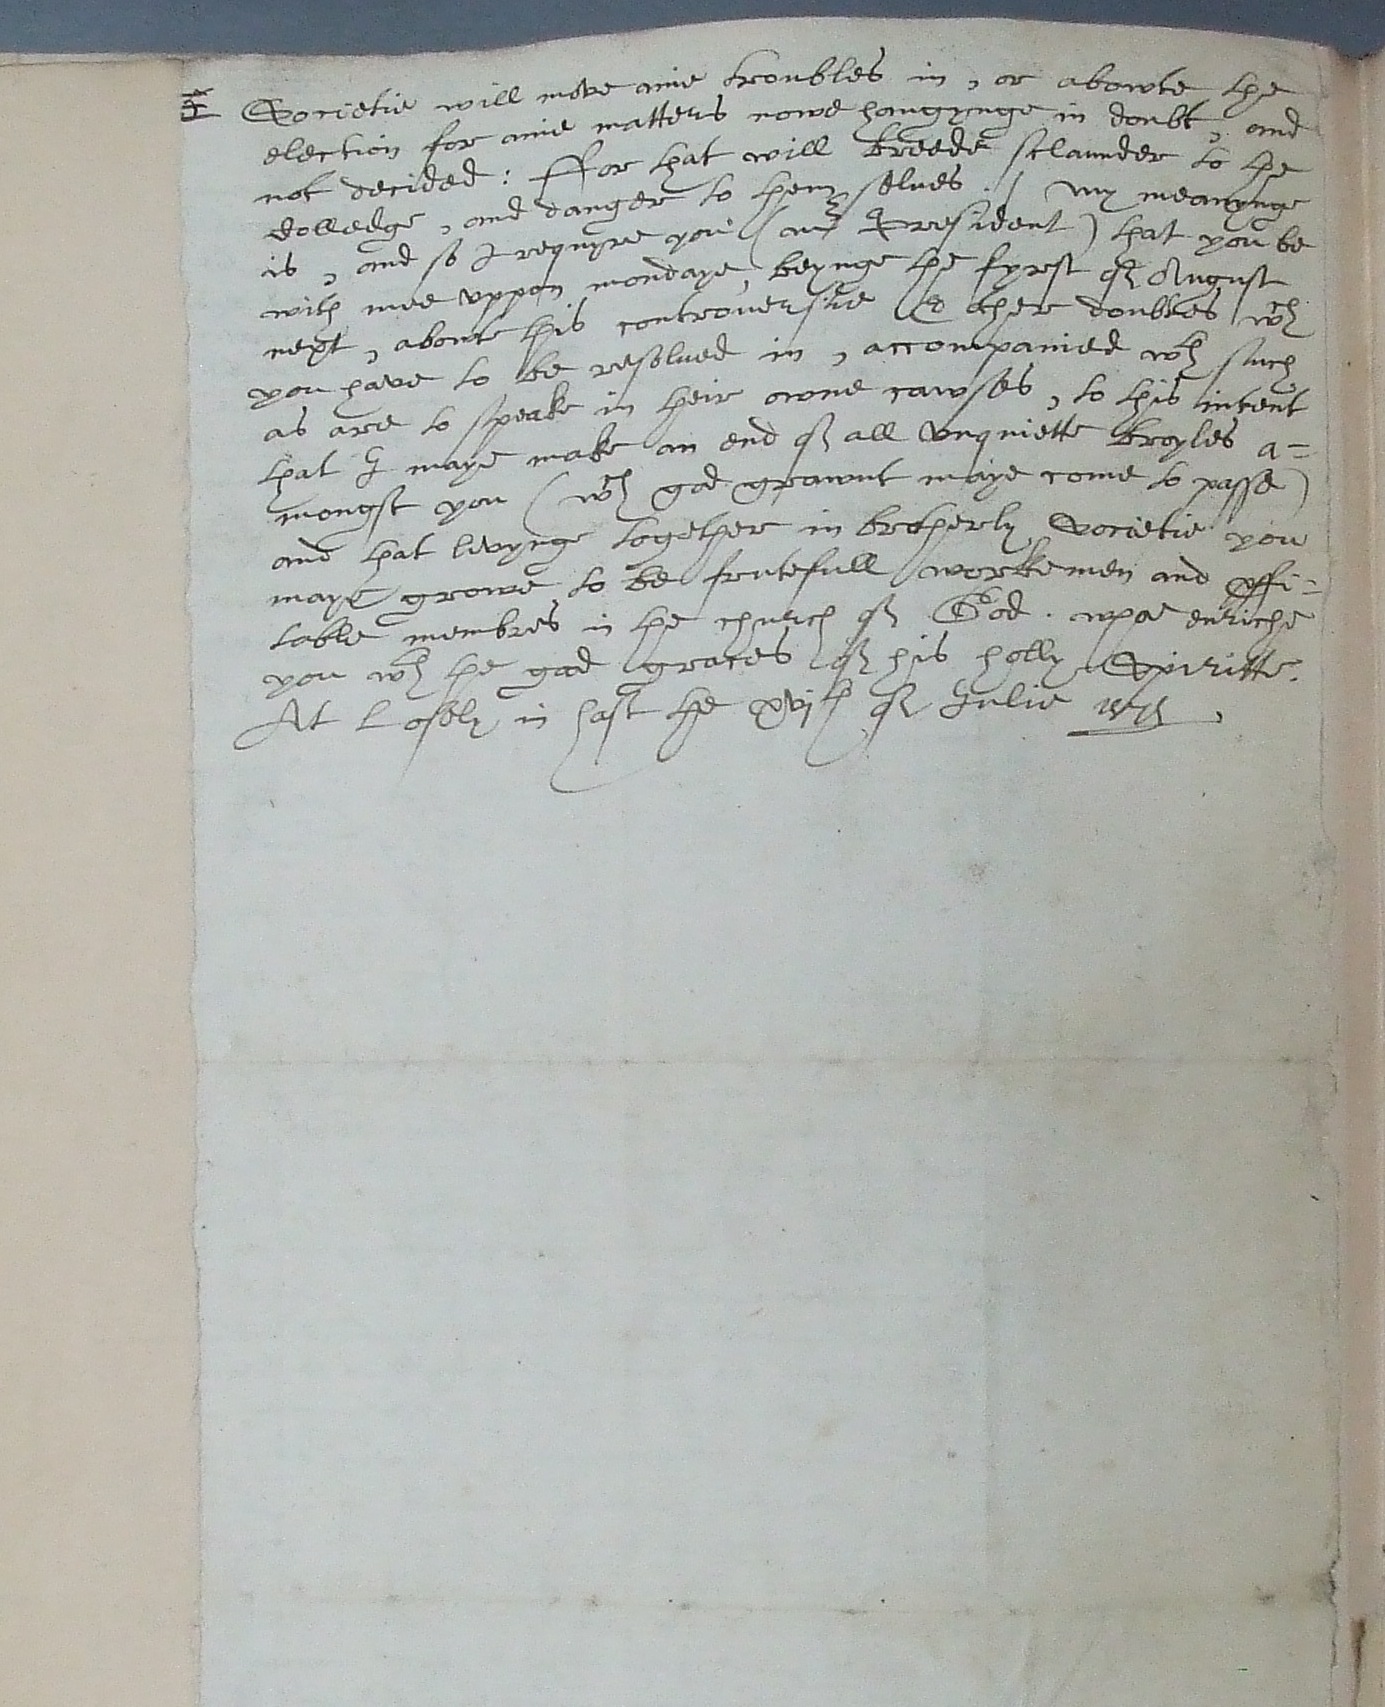 Societie will move anie troubles in, or abowte the
election for anie matters nowe hangynge in doubt, and
not decided: Ffor that will breede sclaunder to the
Colledge, and danger to them selves. / My meanynge
is, and so I requyre you (mr President) that you be
with mee uppon mondaye, beynge the fyrst of August
next, aboute this controuersie & other doubtes wch
you have to be resolued in, accompanied wth such
as are to speake in their owne cawses, to this intent
that I maye make an end of all unquiette broyles a=
mongst you (wch god grawnt maye come to passe)
and that livynge together in brotherly Societie you
maye growe to be frutefull workemen and proffi=
table membres in the church of God. whoe enriche
you wth the good graces of his holly Spiritte.
At Losely in hast the xvjth of Julie